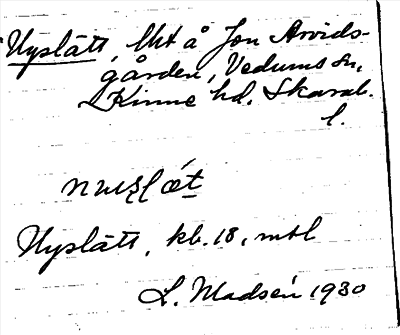 Nyslätt, lht å Jon Arvids-
gården, Vedums sn,
Kinne hd. Skarab.
l.
Nyslätt, kb. 18, mtl
L. Madsén 1930